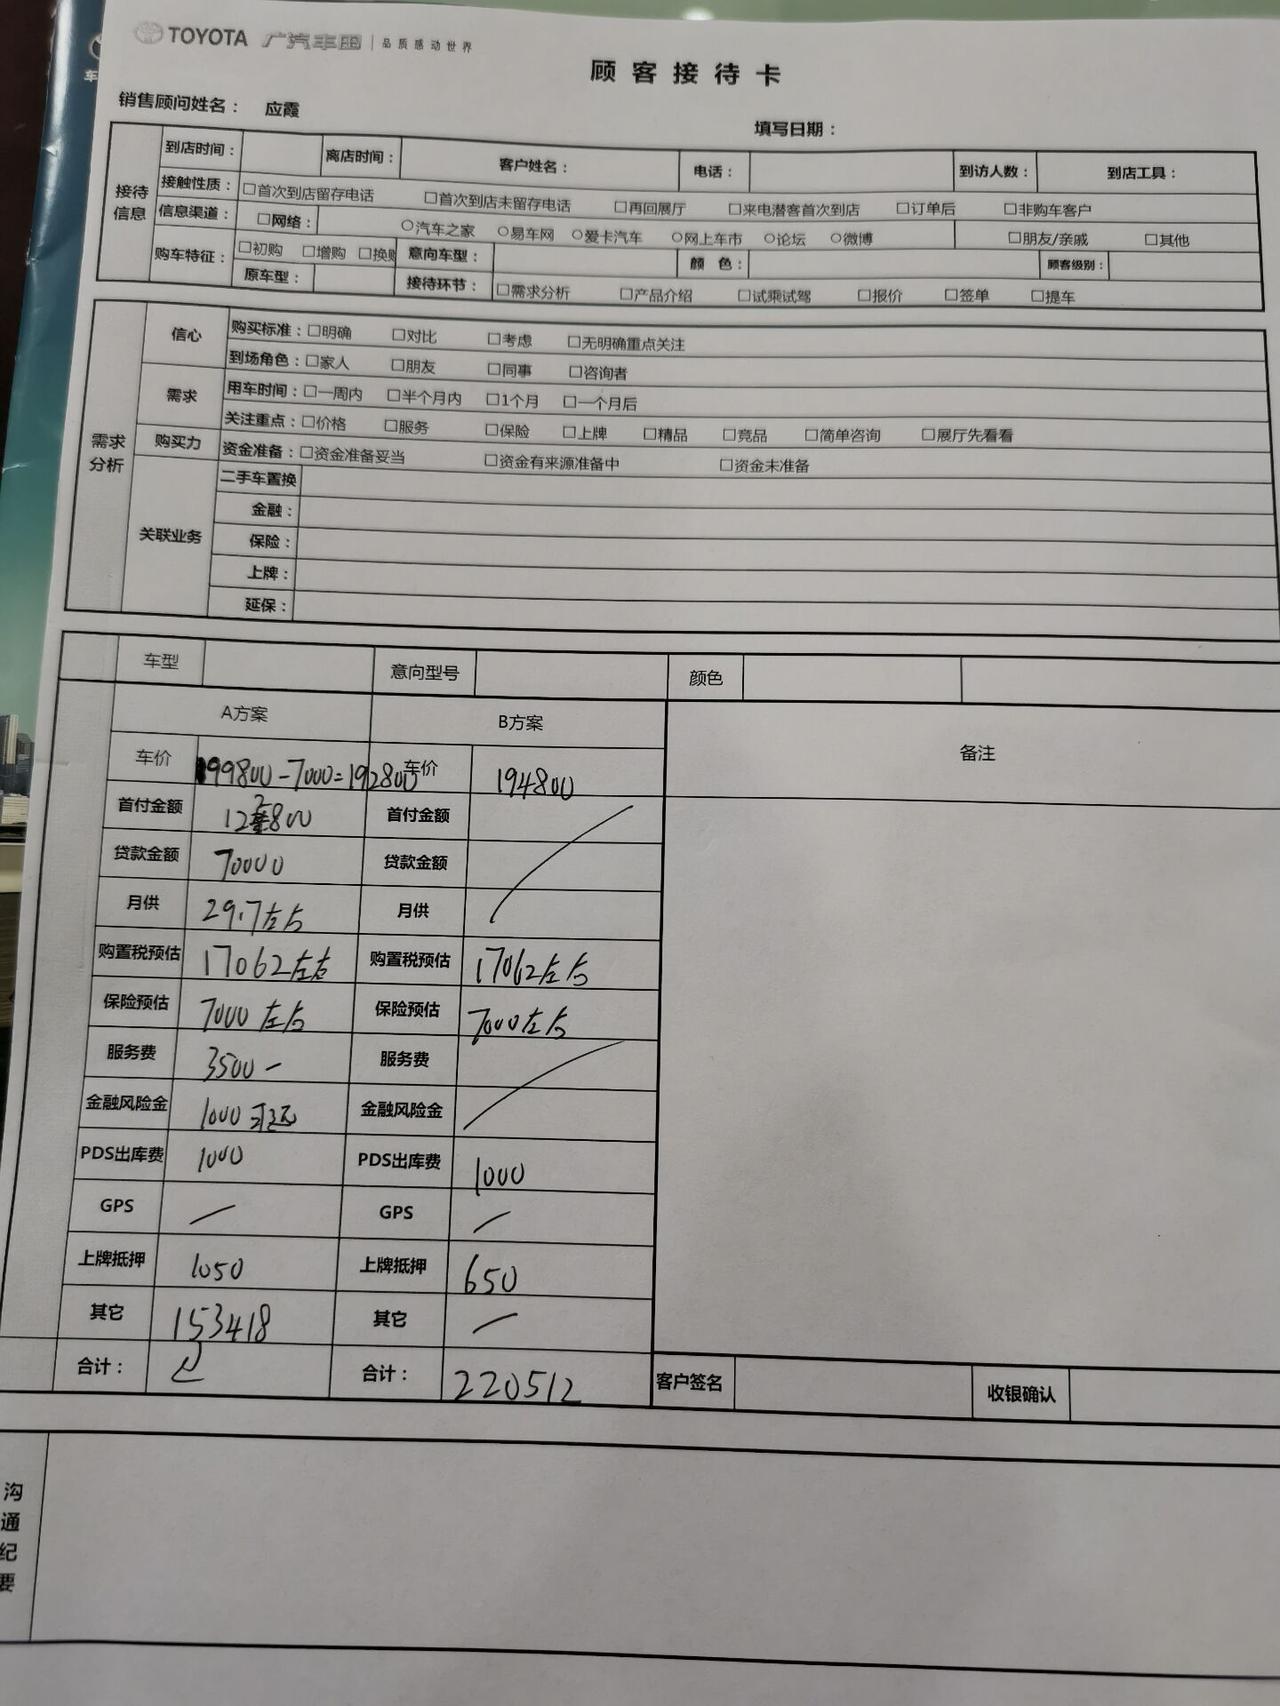 TOYOTA 广汽丰田 品质感动世界
顾客接待卡
销售顾问姓名： 应霞
填写日期：
接待信息
到店时间： 离店时间： 客户姓名： 电话： 到访人数： 到店工具：
接触性质： □首次到店留存电话 □首次到店未留存电话 □再回展厅 □来电潜客首次到店 □订单后 □非购车客户
信息渠道： □网络： ○汽车之家 ○易车网 ○爱卡汽车 ○网上车市 ○论坛 ○微博 □朋友/亲戚 □其他
购车特征： □初购 □增购 □换购 意向车型： 颜 色： 顾客级别：
原车型： 接待环节： □需求分析 □产品介绍 □试乘试驾 □报价 □签单 □提车
需求分析
信心 购买标准：□明确 □对比 □考虑 □无明确重点关注
到场角色：□家人 □朋友 □同事 □咨询者
需求 用车时间：□一周内 □半个月内 □1个月 □一个月后
关注重点：□价格 □服务 □保险 □上牌 □精品 □竞品 □简单咨询 □展厅先看看
购买力 资金准备：□资金准备妥当 □资金有来源准备中 □资金未准备
关联业务
二手车置换
金融：
保险：
上牌：
延保：
车型 意向型号 颜色
A方案 B方案 备注
车价 199800-7000=192800 车价 194800
首付金额 122800 首付金额
贷款金额 70000 贷款金额
月供 29.7左右 月供
购置税预估 17062左右 购置税预估 17062左右
保险预估 7000左右 保险预估 7000左右
服务费 3500 服务费
金融风险金 1000 金融风险金
PDS出库费 1000 PDS出库费 1000
GPS GPS
上牌抵押 1050 上牌抵押 650
其它 153418 其它
合计： 合计： 220512 客户签名 收银确认
沟通纪要